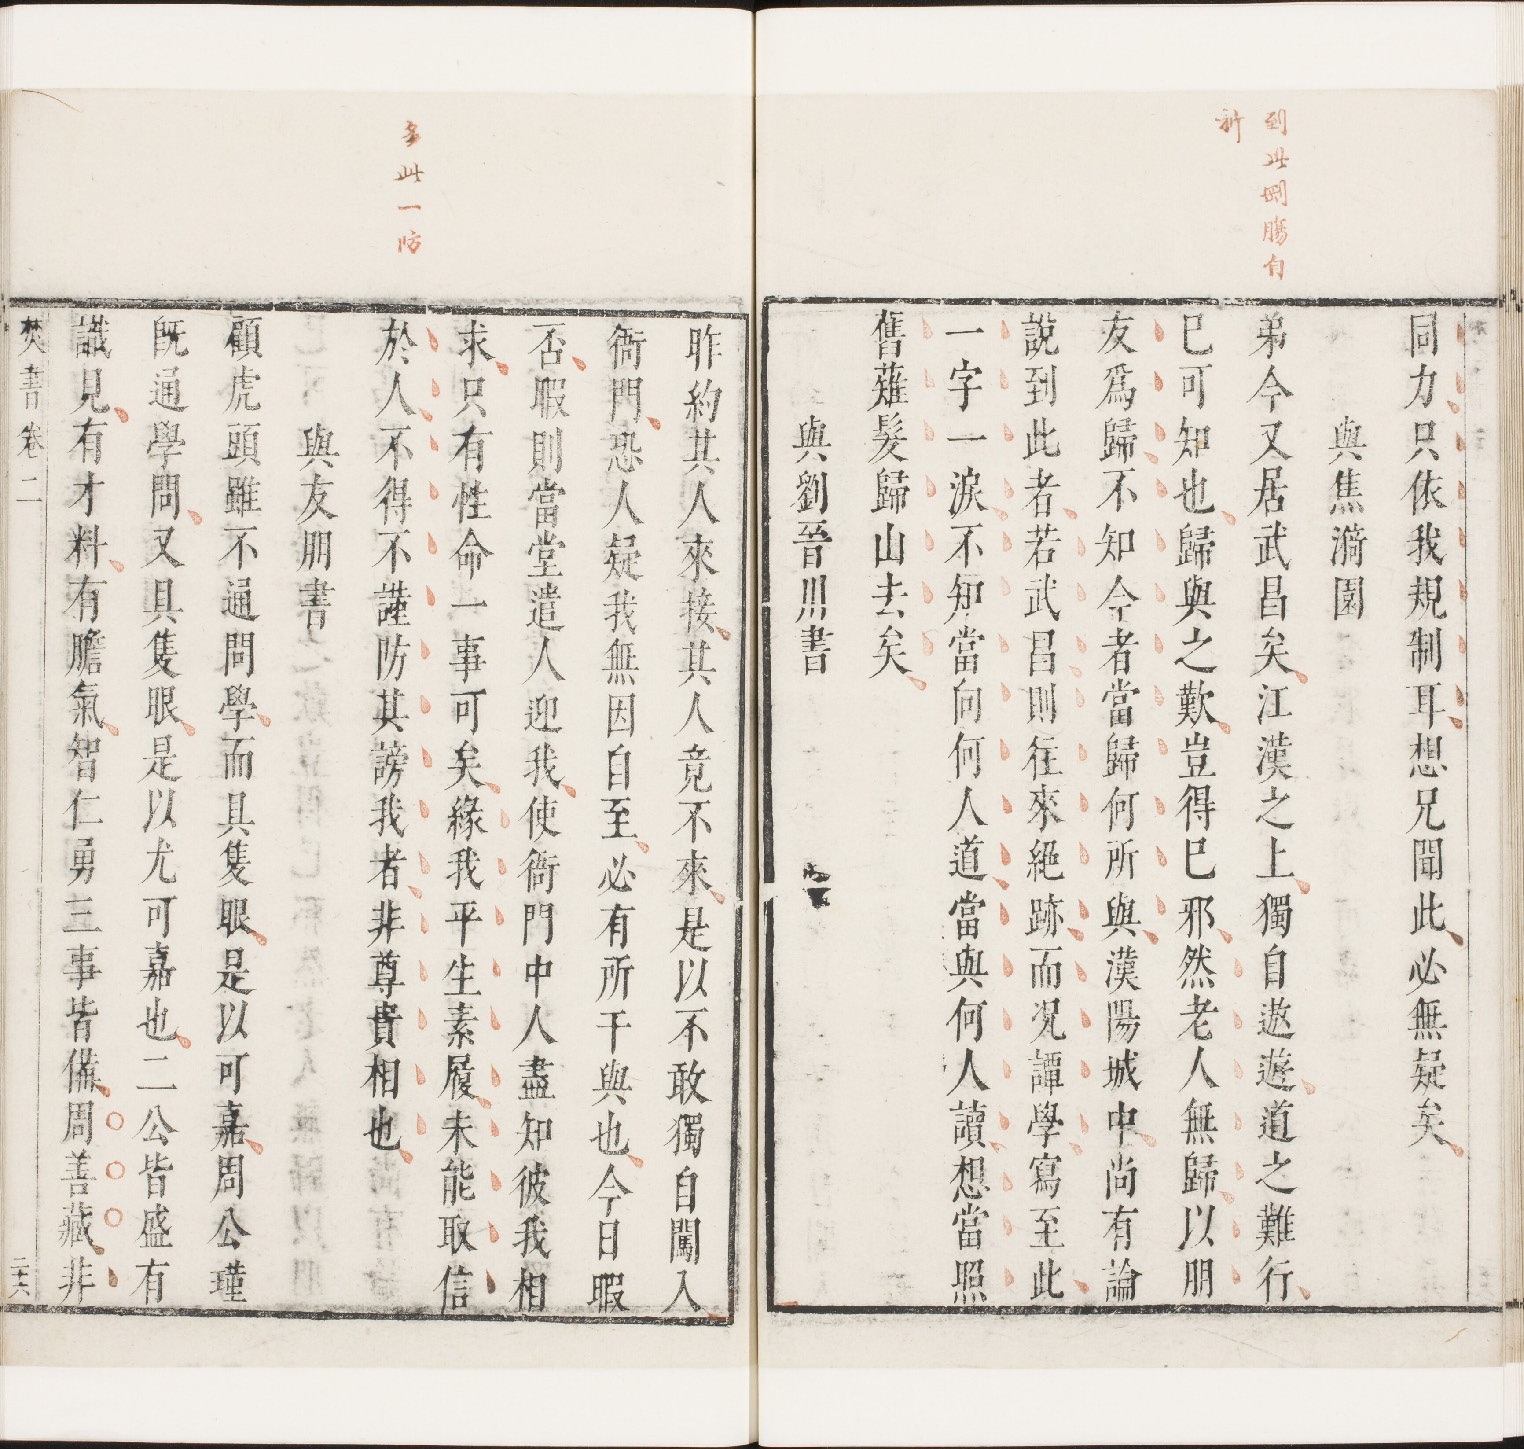 到此惻膓自
斫
同力只依我規制耳想兄聞此必無疑矣
與焦漪園
弟今又居武昌矣江漢之上獨自遨遊道之難行
已可知也歸與之歎豈得已邪然老人無歸以朋
友爲歸不知今者當歸何所與漢陽城中尚有論
說到此者若武昌則往來絕跡而况譚學寫至此
一字一淚不知當向何人道當與何人讀想當照
舊薙髮歸山去矣
與劉晉川書
多此一防
昨約其人來接其人竟不來是以不敢獨自闖入
衙門恐人疑我無因自至必有所干與也今日暇
否暇則當堂遣人迎我使衙門中人盡知彼我相
求只有性命一事可矣緣我平生素履未能取信
於人不得不謹防其謗我者非尊貴相也
與友朋書
顧虎頭雖不通問學而具隻眼是以可嘉周公瑾
既通學問又具隻眼是以尤可嘉也二公皆盛有
識見有才料有膽氣智仁勇三事皆備周善藏非
焚書卷二
二十六